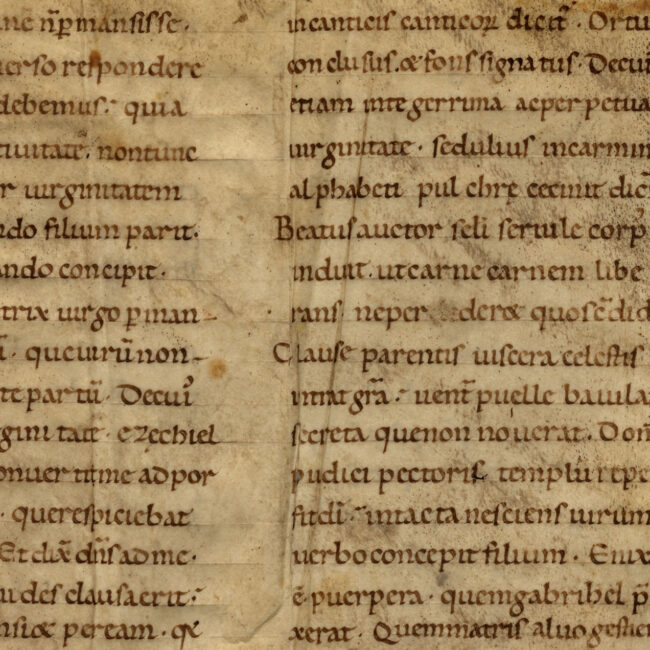 npermansisse.
respondere
debemus. quia
nontunc
uirginitatem
filium parit.
concipit.
uirgo pman-
queuirū non-
partū. Decui
Ezechiel
ad por
querespiciebat
Et dix̄ dn̄s ad me.
clausa erit.
peream. q̄
incanticis canticoꝝ dicit̄. Ortu
conclusus. & fons signatus. Decui
etiam integerrima acperpetua
uirginitate. sedulius incarmin
alphabeti pulchrę cecinit dic̄
Beatus auctor scli seruile corp
induit. utcarne carnem libe
rans. neper deret quos c̄did
Clause parentis uiscera celestis
intrat gr̄a. uent̄ puelle baiula
secreta quenon nouerat. Dom
pudici pectoris templū repe
fit dī. intacta nesciens uirum
uerboconcepit filium. Enix
ē puerpera. quemgabrihel p̄
xerat. Quemmatris aluo gestie